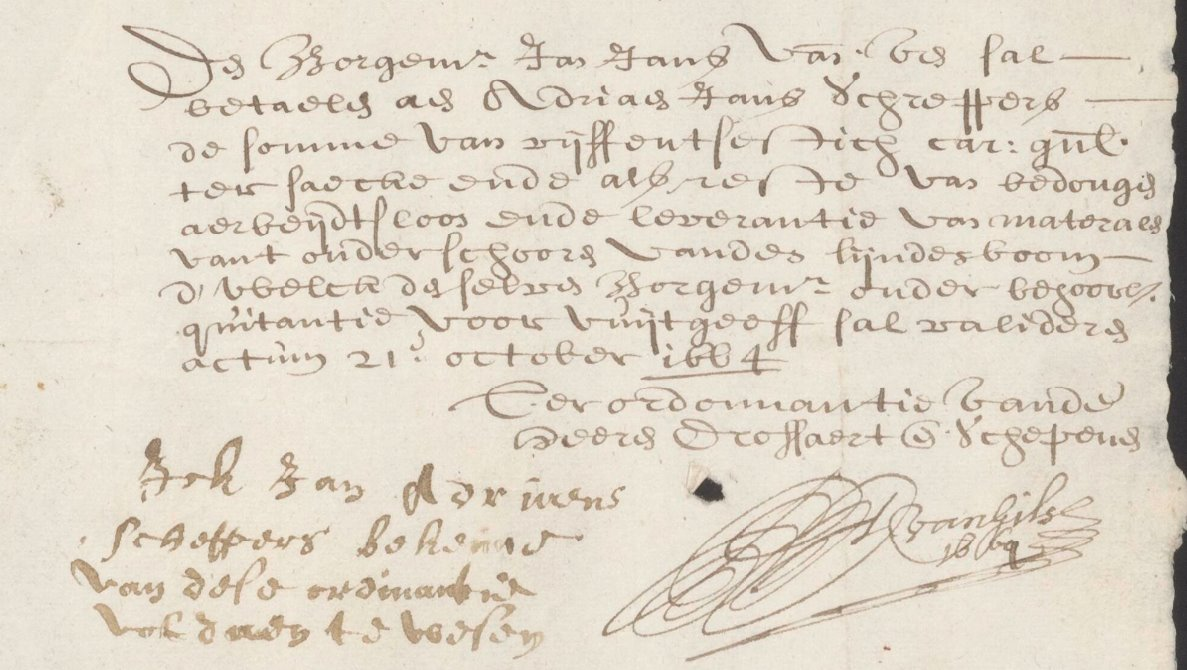 De Borgemr. Jan Jans van Bes sal
betaelen aen Adriaen Jans Schreppers
de somme van vijffentsestich car: gul.
ter saecke ende als reste van bedongen
aerbeijdtsloon ende leverantie van materalen
vant onderschooren vanden lijndenboom
d'welck deselven Borgemr. onder behoorl.
quitantie voor uuijtgeeff sal valideren
actum 21: october 1664
Ter ordonnantie vande
Heeren Drossaert en Schepenen
Ick Jan Adriaens
scheppers bekenne
van dese ordinantie
voldaen te wesen
vanhils
1664